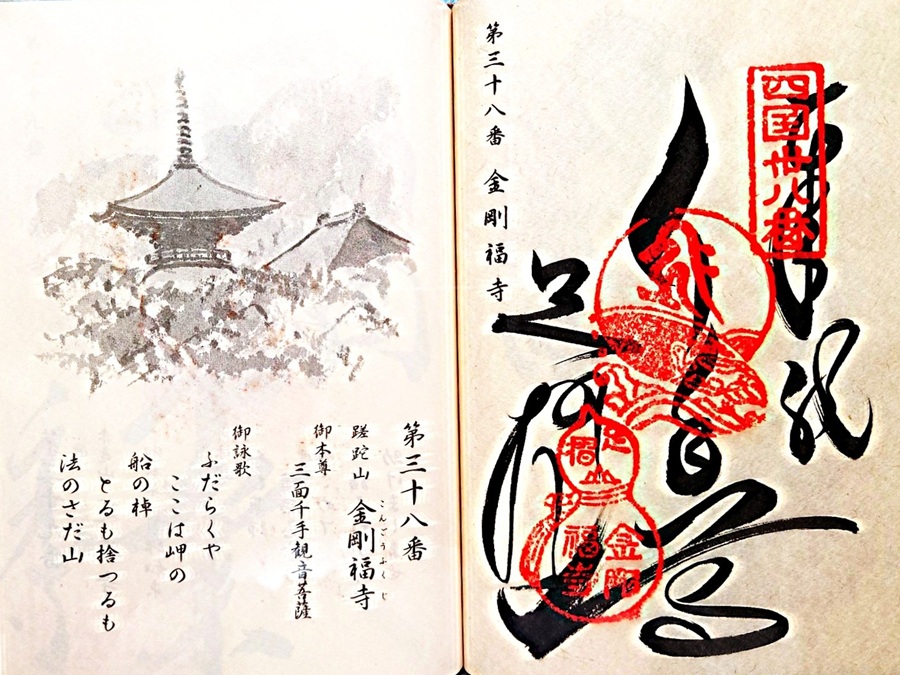 第三十八番 金剛福寺
四国卅八番
奉納
足摺山
金剛福寺
第三十八番
蹉跎山 金剛福寺
こんごうふくじ
御本尊
三面千手観音菩薩
御詠歌
ふだらくや
ここは岬の
船の棹
とるも捨つるも
法のさだ山